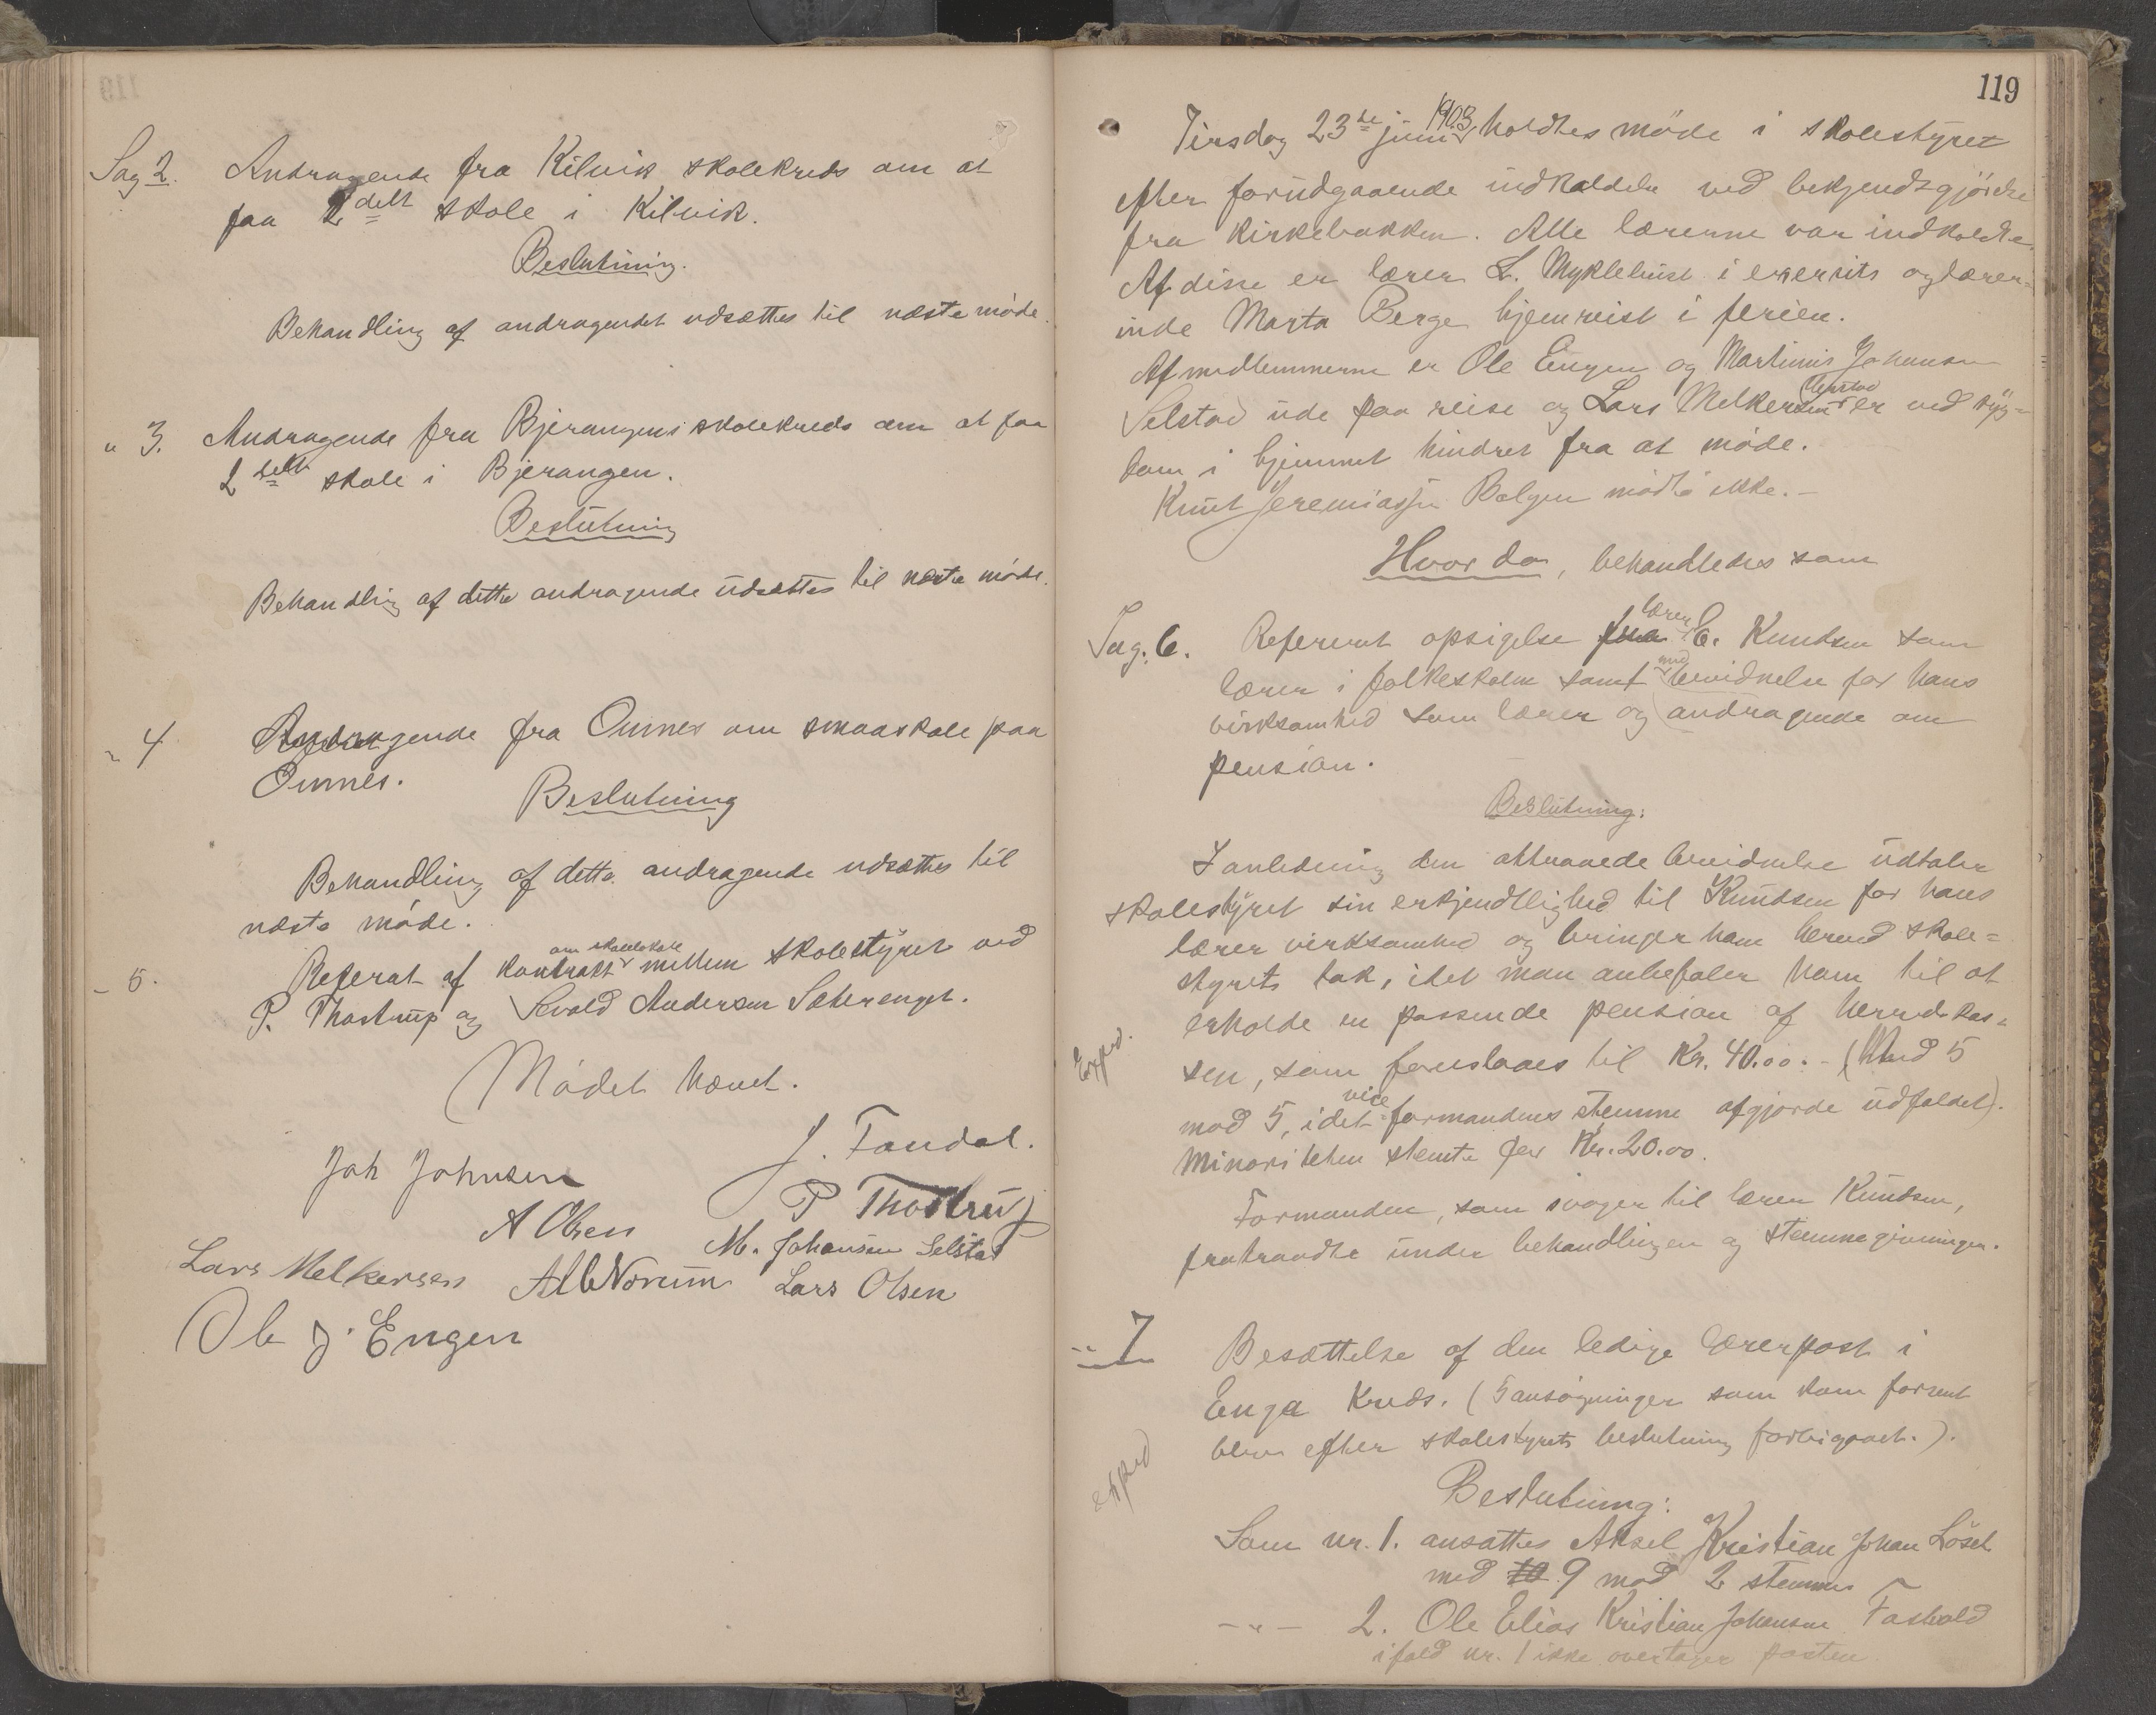 Sag 2. Andragende fra Kilvik skolekreds om at
faa 2delt skole i Kilvik.
Beslutning.
Behandling af andragendet udsættes til næste møde.
" 3. Andragende fra Bjerangens skolekreds om at faa
2delt skole i Bjerangen.
Beslutning
Behandling af dette andragende udsættes til næste møde.
" 4 Andragende fra Ournes om smaaskole paa
Ournes.
Beslutning
Behandling af dette andragende udsættes til
næste møde.
- 5. Referat af kontrakt om skolelokale mellem skolestyret ved
P. Thostrup og Sevald Andersen Sæterenget.
Mødet hævet.
J. Fondal.
Joh Johnsen
P Thostrup
A Olsen
M. Johansen Selstad
Lars Melkersen Alb Norum Lars Olsen
Ole J. Engen
119
Tirsdag 23de juni 1903 holdtes møde i skolestyret
efter forudgaaende indkaldelse ved bekjendtgjørelse
fra kirkebakken. Alle lærerne var indkaldte.
Af disse er lærer L. Myklebust i exersits og lærer-
inde Marta Berge hjemreist i ferien.
Af medlemmerne er Ole Engen og Martinus Johansen
Selstad ude paa reise og Lars Melkersen er ved syg-
dom i hjemmet hindret fra at møde.
Knut Jeremiassen Bolgen mødte ikke.-
Hvor da, behandledes som
Sag. 6. Refereret opsigelse fra lærer C. Knudsen som
lærer i folkeskolen samt med bevidnelse for hans
virksomhed som lærer og andragende om
pension.
Beslutning:
I anledning den attraaede bevidnelse udtaler
skolestyret sin erkjendtlighed til Knudsen for hans
lærer virksomhed og bringer ham herved skole=
styrets tak, idet man anbefaler ham til at
erholde en passende pension af herredskas=
Exped.
sen, som foreslaaes til Kr. 40.00.- (Med 5
mod 5, idet vice=formandens stemme afgjorde udfaldet).
Minoriteten stemte for Kr. 20.00.
Formanden, som svoger til lærer Knudsen,
fratraadte under behandlingen og stemmegivningen.
" 7 Besættelse af den ledige lærerpost i
Enga kreds. (5 ansøgninger som kom forsent
blev efter skolestyrets beslutning forbigaaet.).
exped
Beslutning:
Som nr. 1. ansættes Aksel Kristian Johan Løset
med 10 9 mod 2 stemmer
- " - 2. Ole Elias Kristian Johansen
ifald nr. 1 ikke overtager posten